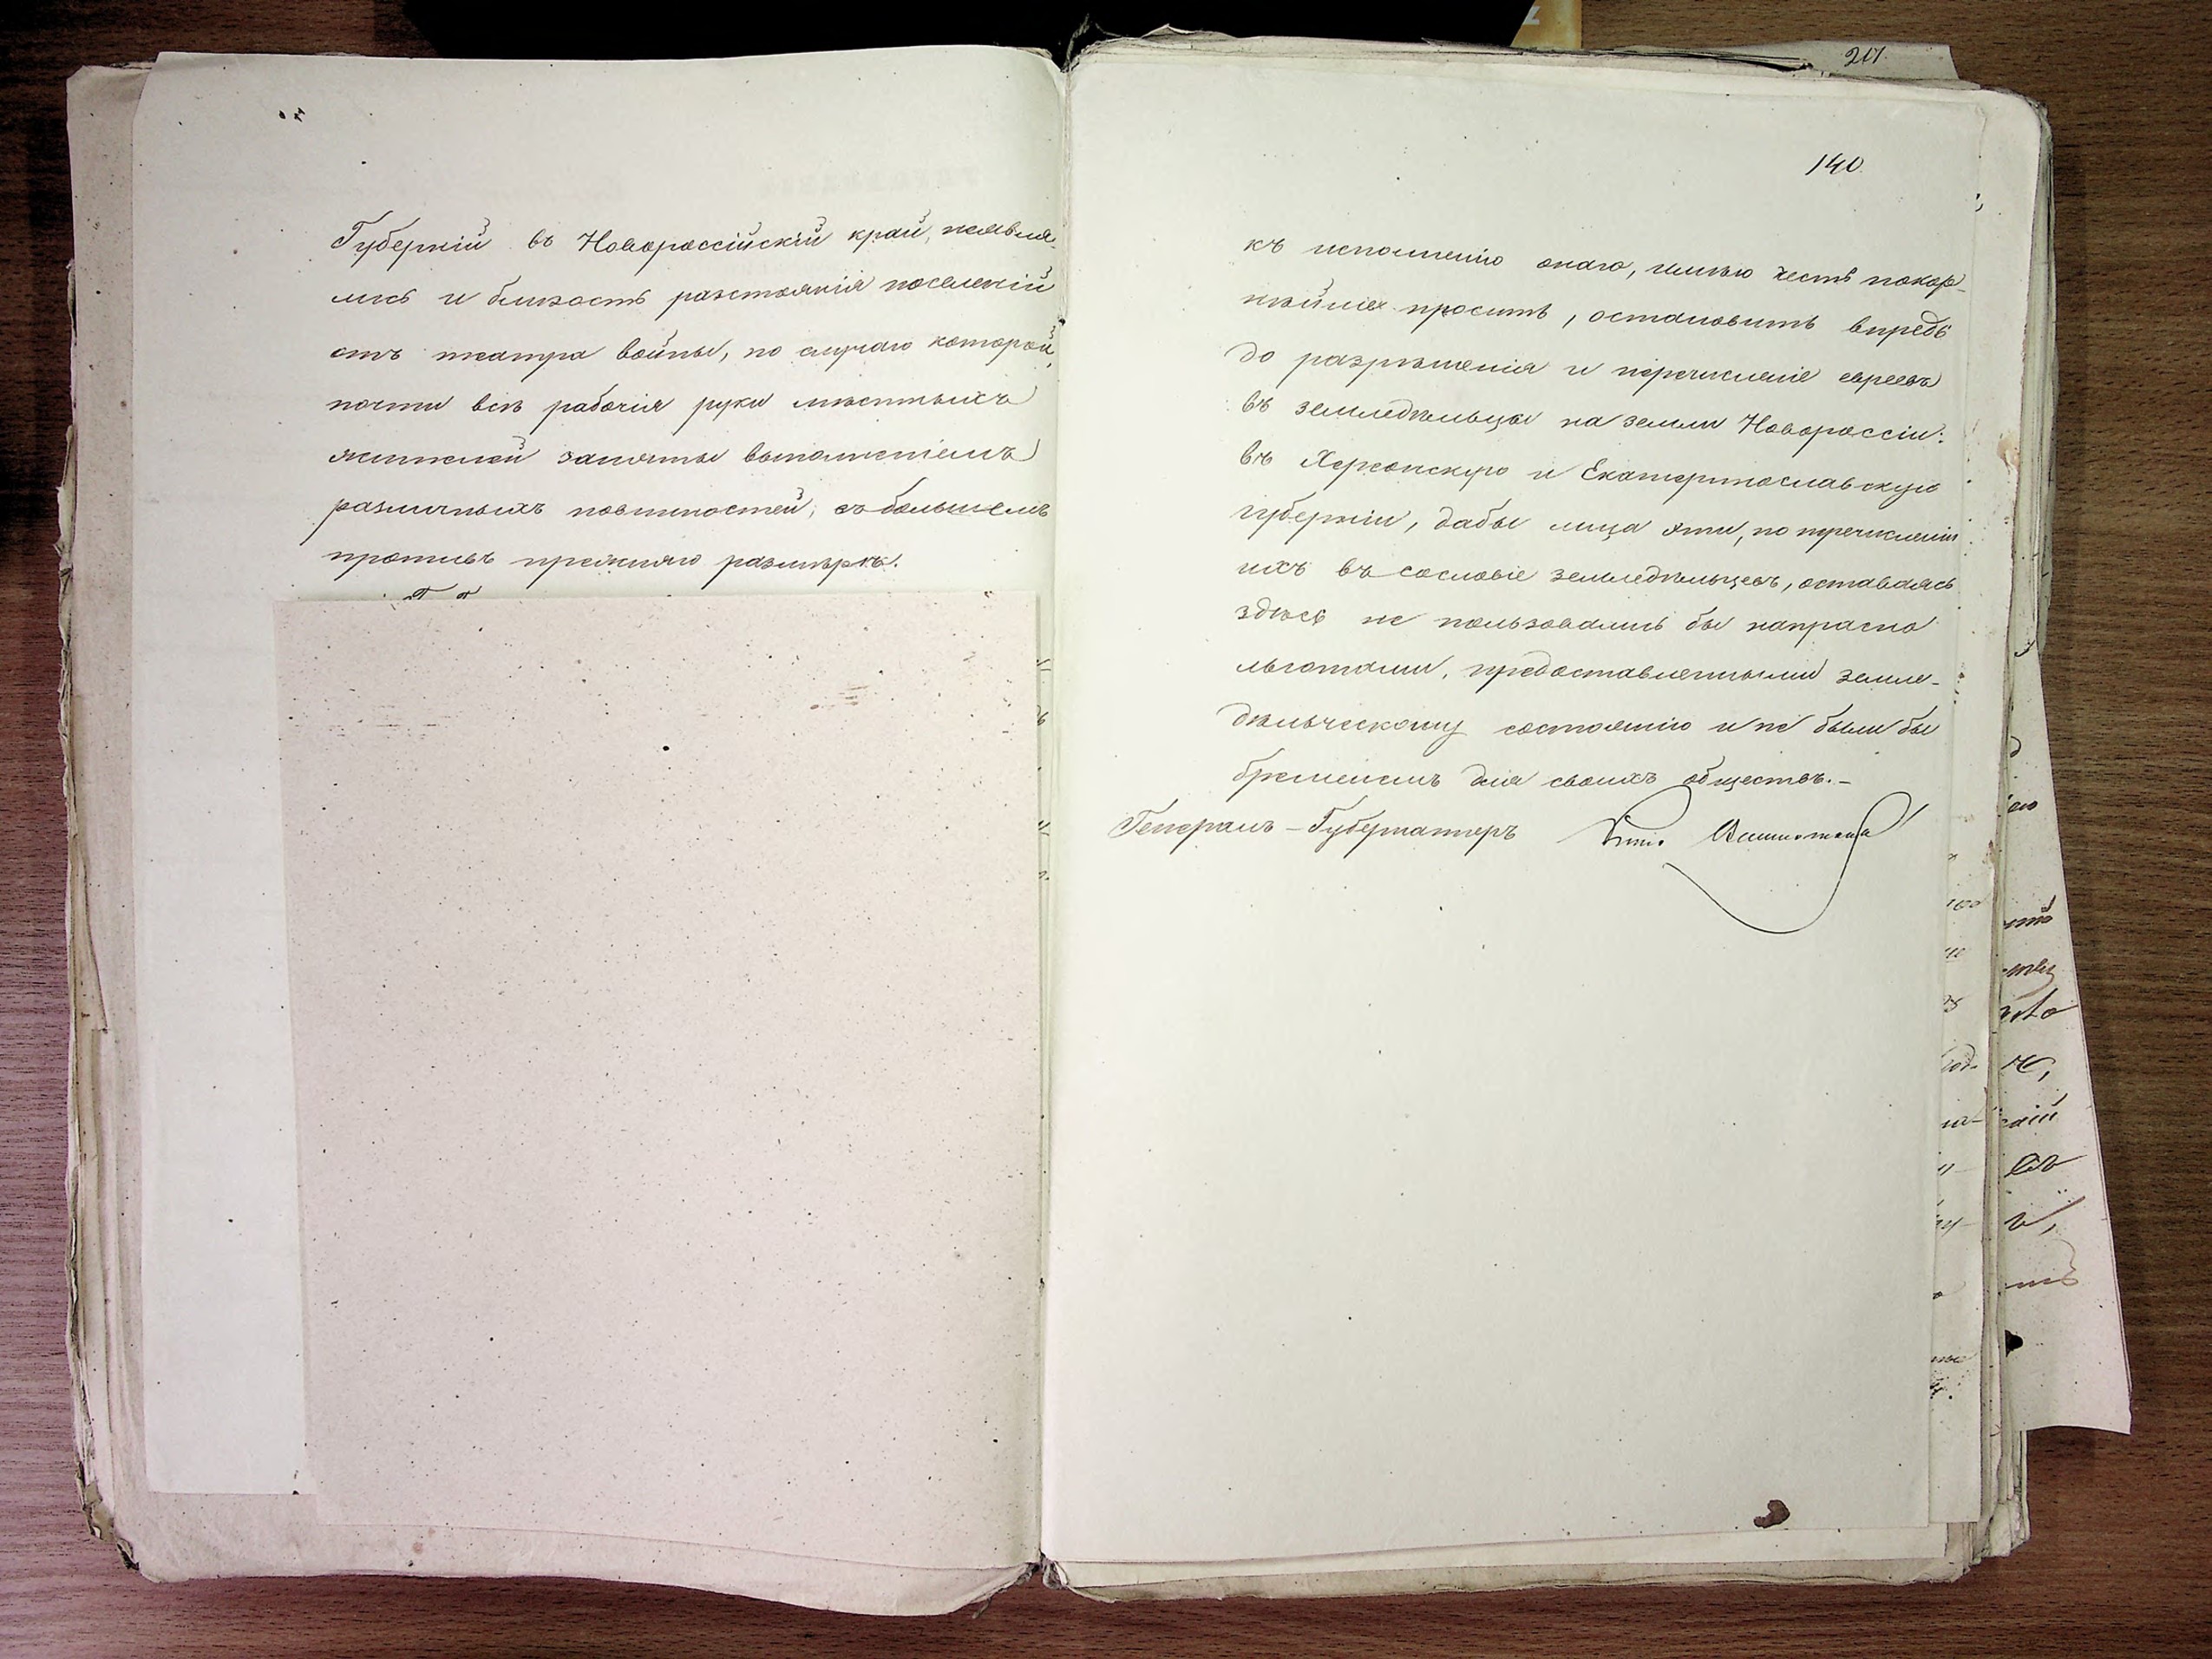 Губерній въ Новороссійскій край,
лись и близость разстоянія поселеній
отъ театра войны, по случаю которой,
почти всѣ рабочія руки мѣстныхъ
жителей заняты выполненіемъ
различныхъ повинностей, въ большемъ
противъ прежняго размѣрѣ.
217.
140
къ исполненію онаго, имѣю честь покор-
нѣйше просить, остановить впредь
до разрѣшенія и перечисленіе евреевъ
въ земледѣльцы на земли Новороссіи:
въ Херсонскую и Екатеринославскую
губерніи, дабы лица эти, по перечисленіи
ихъ въ сословіе земледѣльцевъ, оставаясь
здѣсь не пользовались бы напрасно
льготами, предоставленными земле-
дѣльческому состоянію и не были бы
бременемъ для своихъ обществъ.-
Генералъ-Губернаторъ